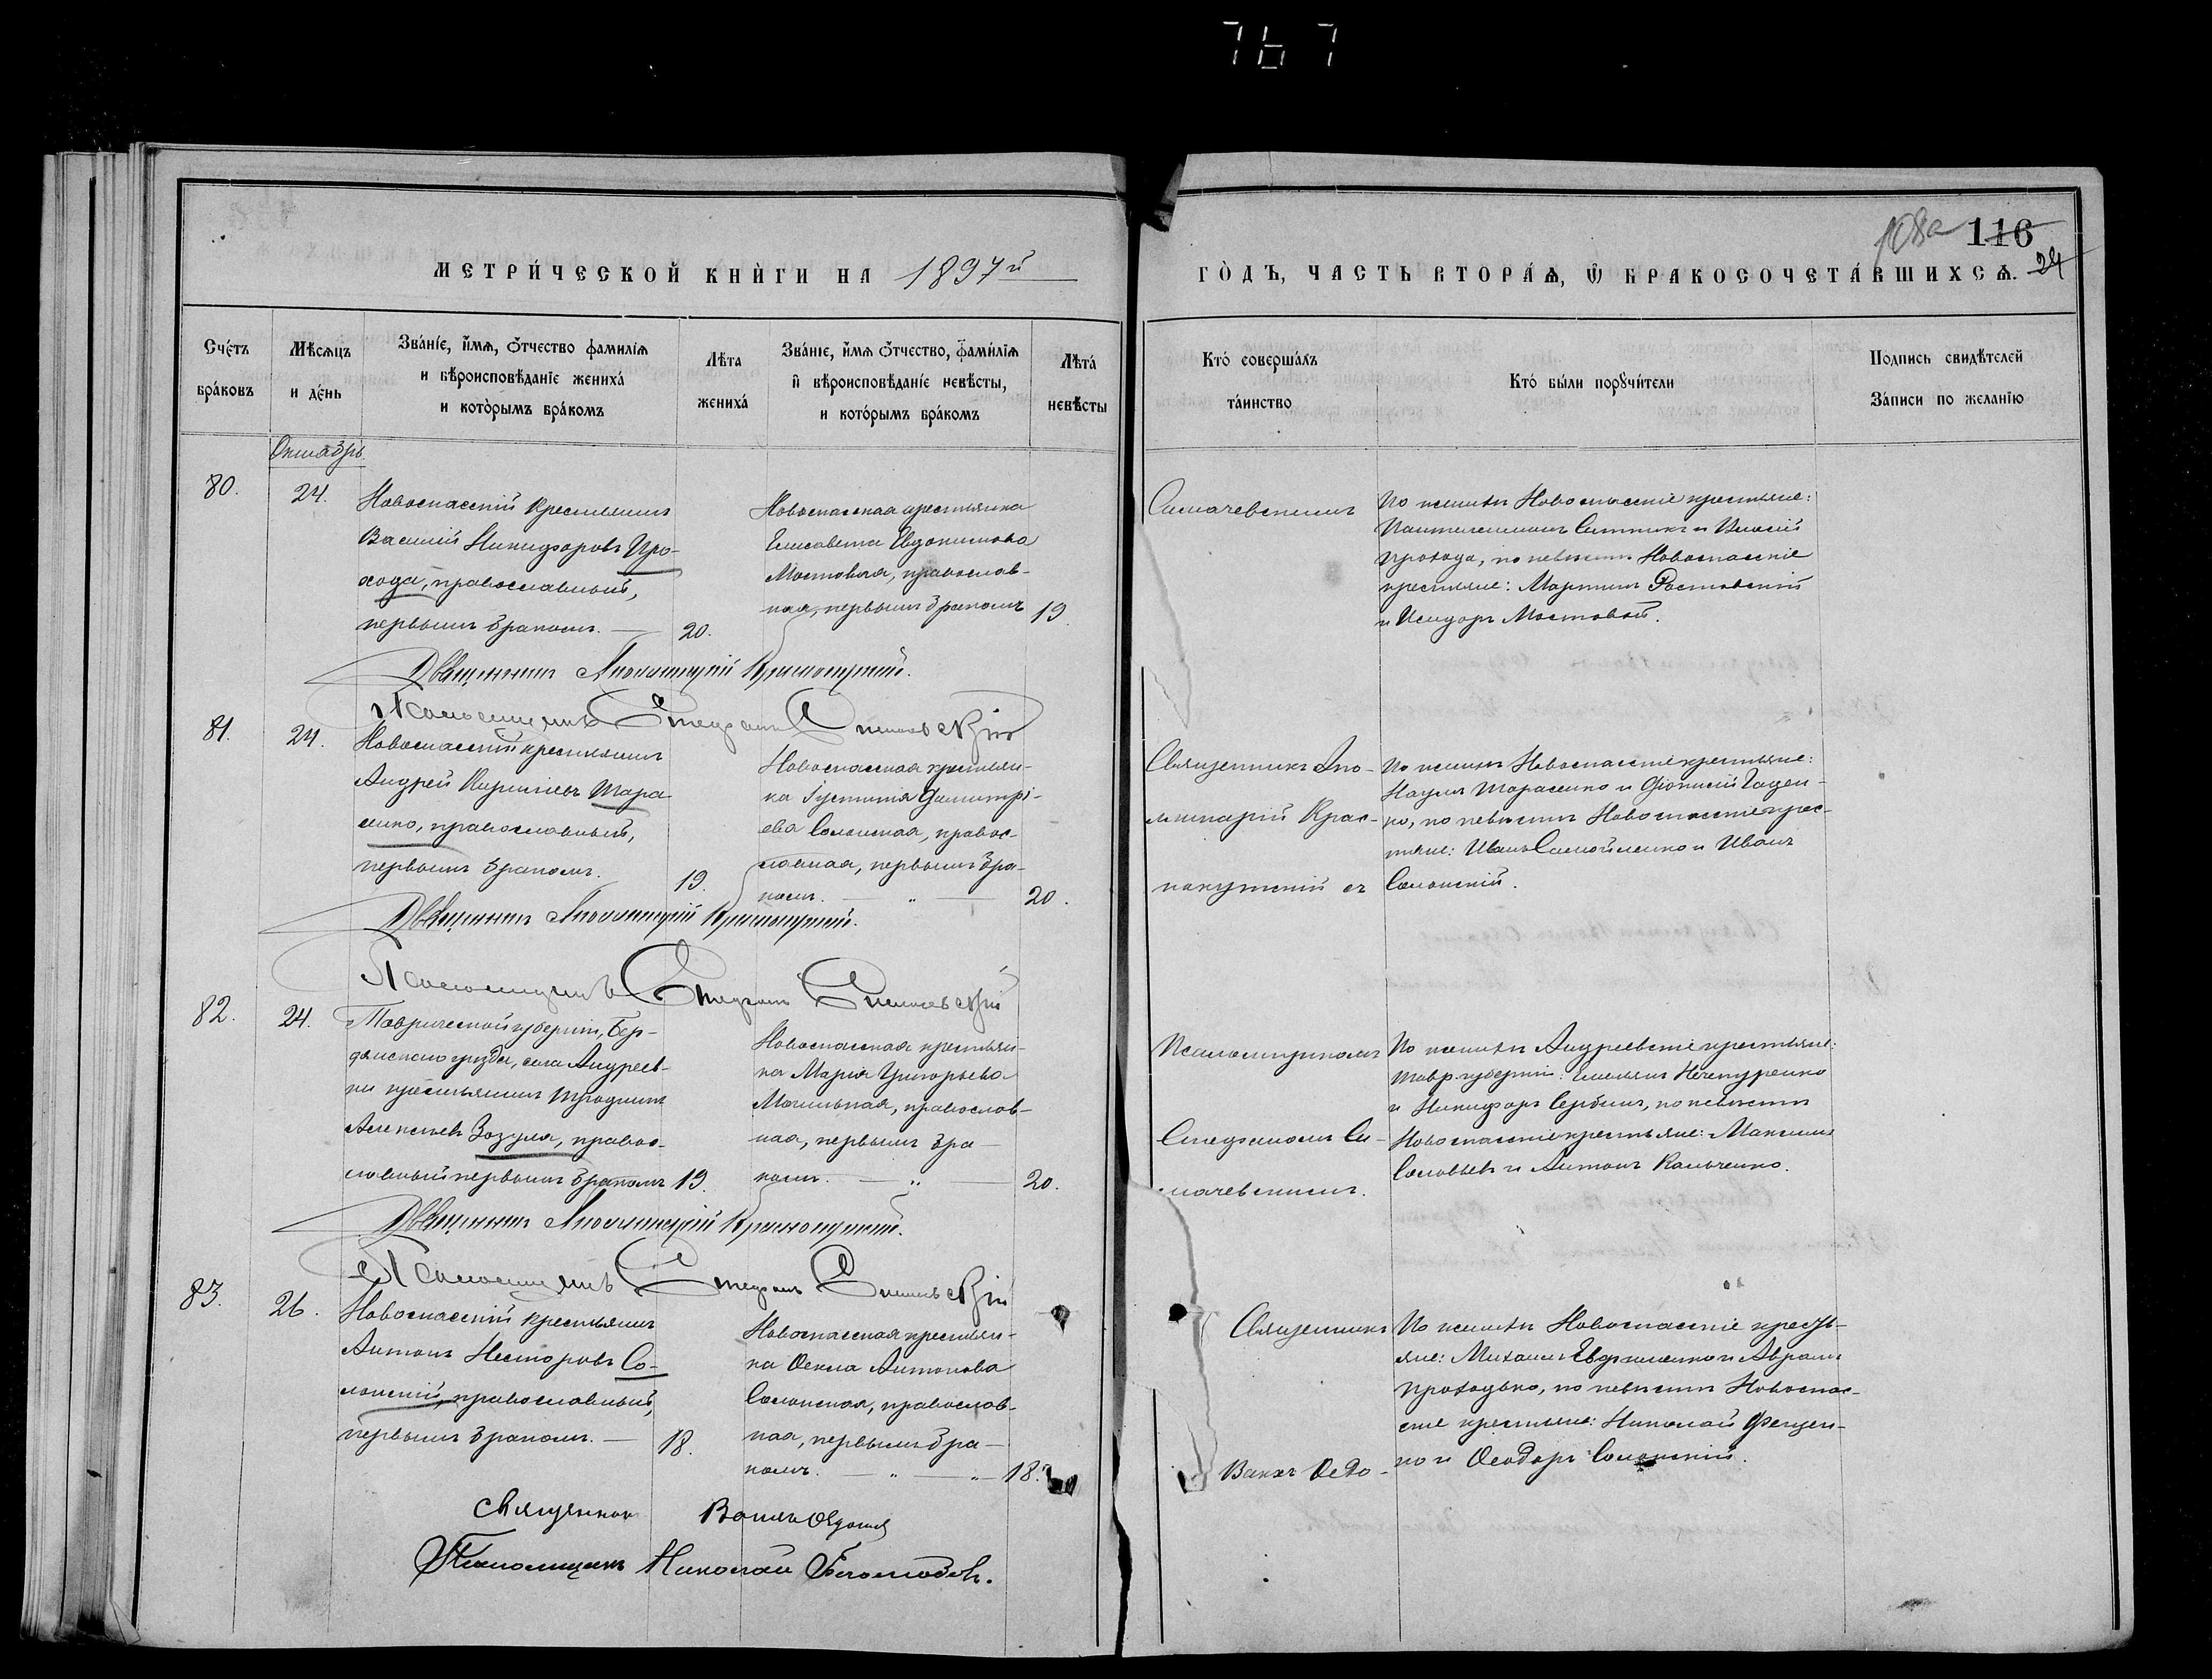 767
108а 116
24
МЕТРИ́ЧЕСКОЙ КНИ́ГИ НА 1897й
ГО́ДЪ, ЧАСТЬ ВТОРА́Ѧ, Ѡ҆ БРАКОСОЧЕТА́ВШИХСѦ.
Сче́тъ бра́ковъ
Мѣ́сѧцъ и де́нь
Зва́нїе, и҆́мѧ, ѻ҆́тчество фами́лїѧ
и вѣроисповѣ́данїе жениха́
и кото́рымъ бра́комъ
Лѣ́та жениха́
Зва́нїе, и҆́мѧ ѻ҆́тчество, фами́лїѧ
и҆ вѣроисповѣ́данїе невѣ́сты,
и кото́рымъ бра́комъ
Лѣта́ невѣ́сты
Кто́ соверша́лъ та́инство
Кто́ бы́ли порꙋчи́тели
Подпись свидѣ́телей
За́писи по жела́нїю
Октябрь
80.
24.
Новоспасскій крестьянинъ
Василій Никифоровъ Про-
хода, православный,
первымъ бракомъ. — 20.
Новоспасская крестьянка
Елисавета Евдокимова
Мостовая, православ-
ная, первымъ бракомъ 19.
Симачевскимъ
По женихѣ Новоспасскіе крестьяне:
Пантелеимонъ Ситникъ и
Прохода, по невѣстѣ Новоспасскіе
крестьяне: Мартинъ Ростовскій
и Исидоръ Мостовой.
Священникъ Аполлинарій Краснокутскій.
Псаломщикъ Стефанъ
81.
24.
Новоспасскій крестьянинъ
Андрей Кириловъ Тара-
сенко, православный,
первымъ бракомъ. 19.
Новоспасская крестьян-
ка Іустинія Димитрі-
ева Солонская, правос-
лавная, первымъ бра-
комъ. — „ — 20.
Священникъ Апо-
линарій Крас-
нокутскій съ
По женихѣ Новоспасскіе крестьяне:
Наумъ Тарасенко и Діонисій Гацен-
ко, по невѣстѣ Новоспасскіе крес-
тьяне: Иванъ Самойленко и Иванъ
Солонскій.
Священникъ Аполлинарій Краснокутскій.
Псаломщикъ Стефанъ
82.
24.
Таврической губерніи, Бер-
дянскаго уѣзда, села Андреев-
ки крестьянинъ Трофимъ
Алексѣевъ Зозуля, правос-
лавный первымъ бракомъ 19.
Новоспасская крестьян-
ка Марія Григорьева
Могильная, православ-
ная, первымъ бра-
комъ. — „ 20.
Псаломщикомъ
Стефаномъ Си-
мачевскимъ.
По женихѣ Андреевскіе крестьяне:
Тавр. губерніи: Емельянъ Нечепуренко
и Никифоръ Сербинъ, по невѣстѣ
Новоспасскіе крестьяне: Максимъ
Соловьевъ и Антонъ Кальченко.
Священникъ Аполлинарій Краснокутскій.
Псаломщикъ Стефанъ
83.
26.
Новоспасскій крестьянинъ
Антонъ Несторовъ Со-
лонскій, православный,
первымъ бракомъ. — 18.
Новоспасская крестьян-
ка Ѳекла Антонова
Солонская, православ-
ная, первымъ бра-
комъ. — „ — „ — 18.
Священникъ
Вакхъ Ѳедо-
По женихѣ Новоспасскіе кресть-
яне: Михаилъ Евфименко и Аврамъ
Проходько, по невѣстѣ Новоспас-
скіе крестьяне: Николай Феден-
ко и Ѳеодоръ Солонскій.
Священникъ Вакхъ
Псаломщикъ Николай